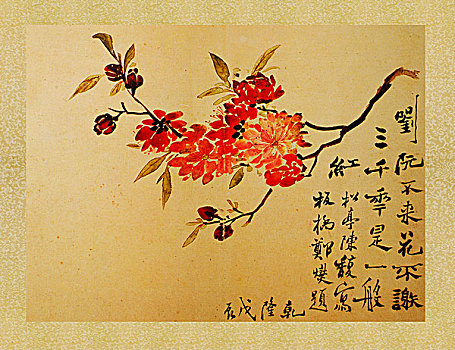 劉阮不来花不謝
三千年是一般
紅
松亭陳馥寫
板橋鄭燮題
乾隆戊辰